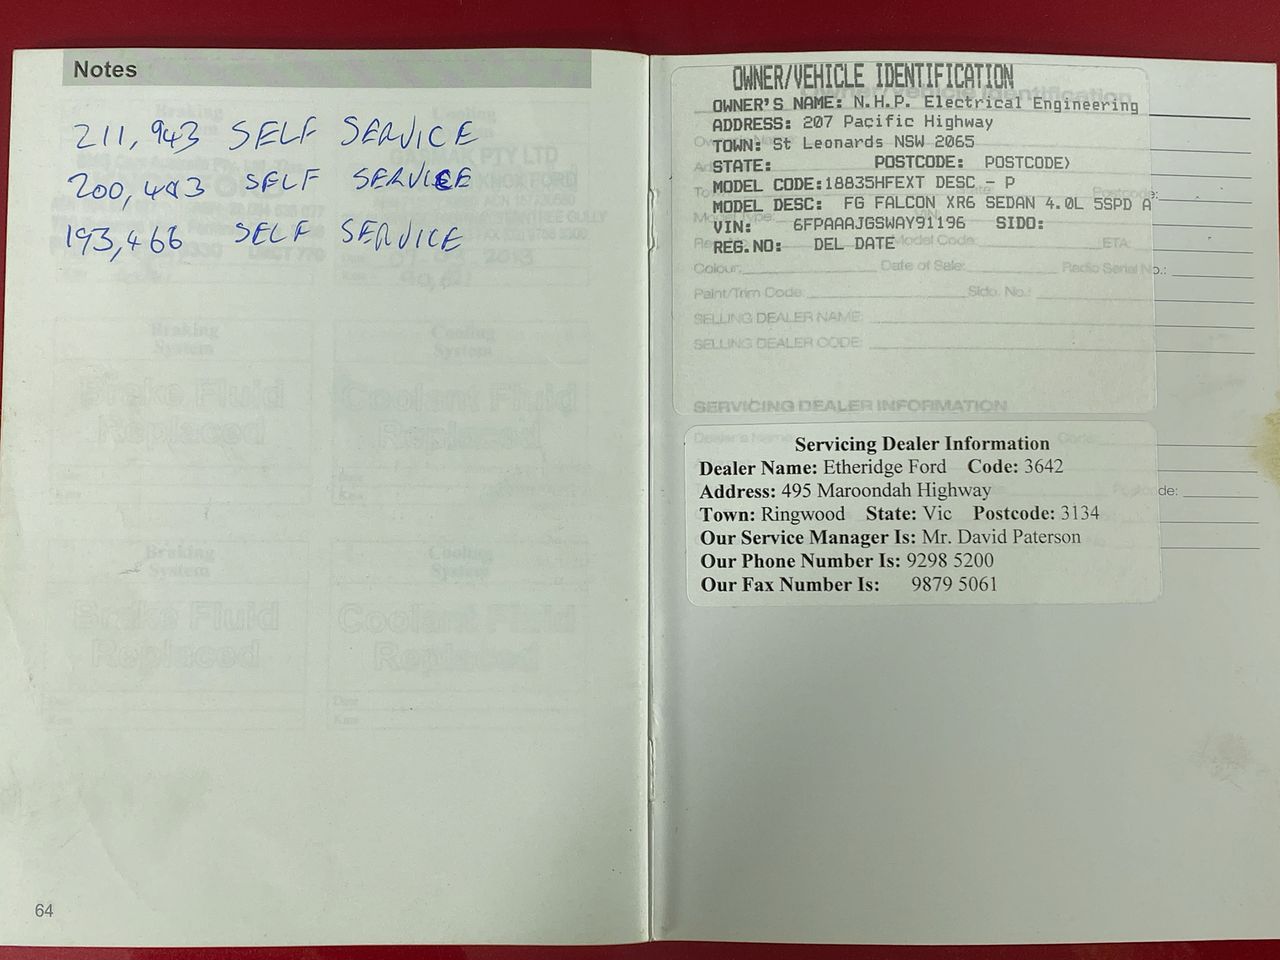 Notes
211,943 SELF SERVICE
200,483 SELF SERVICE
193,466 SELF SERVICE
64
OWNER/VEHICLE IDENTIFICATION
OWNER'S NAME: N.H.P. Electrical Engineering
ADDRESS: 207 Pacific Highway
TOWN: St Leonards NSW 2065
STATE: POSTCODE: POSTCODE)
MODEL CODE:18835HFEXT DESC - P
MODEL DESC: FG FALCON XR6 SEDAN 4.0L 5SPD A
VIN: 6FPAAAJGSWAY91196 SIDO:
REG.NO: DEL DATE
Colour: Date of Sale: Radio Serial No.:
Paint/Trim Code: Sido. No.:
SELLING DEALER NAME:
SELLING DEALER CODE:
SERVICING DEALER INFORMATION
Servicing Dealer Information
Dealer Name: Etheridge Ford Code: 3642
Address: 495 Maroondah Highway
Town: Ringwood State: Vic Postcode: 3134
Our Service Manager Is: Mr. David Paterson
Our Phone Number Is: 9298 5200
Our Fax Number Is: 9879 5061